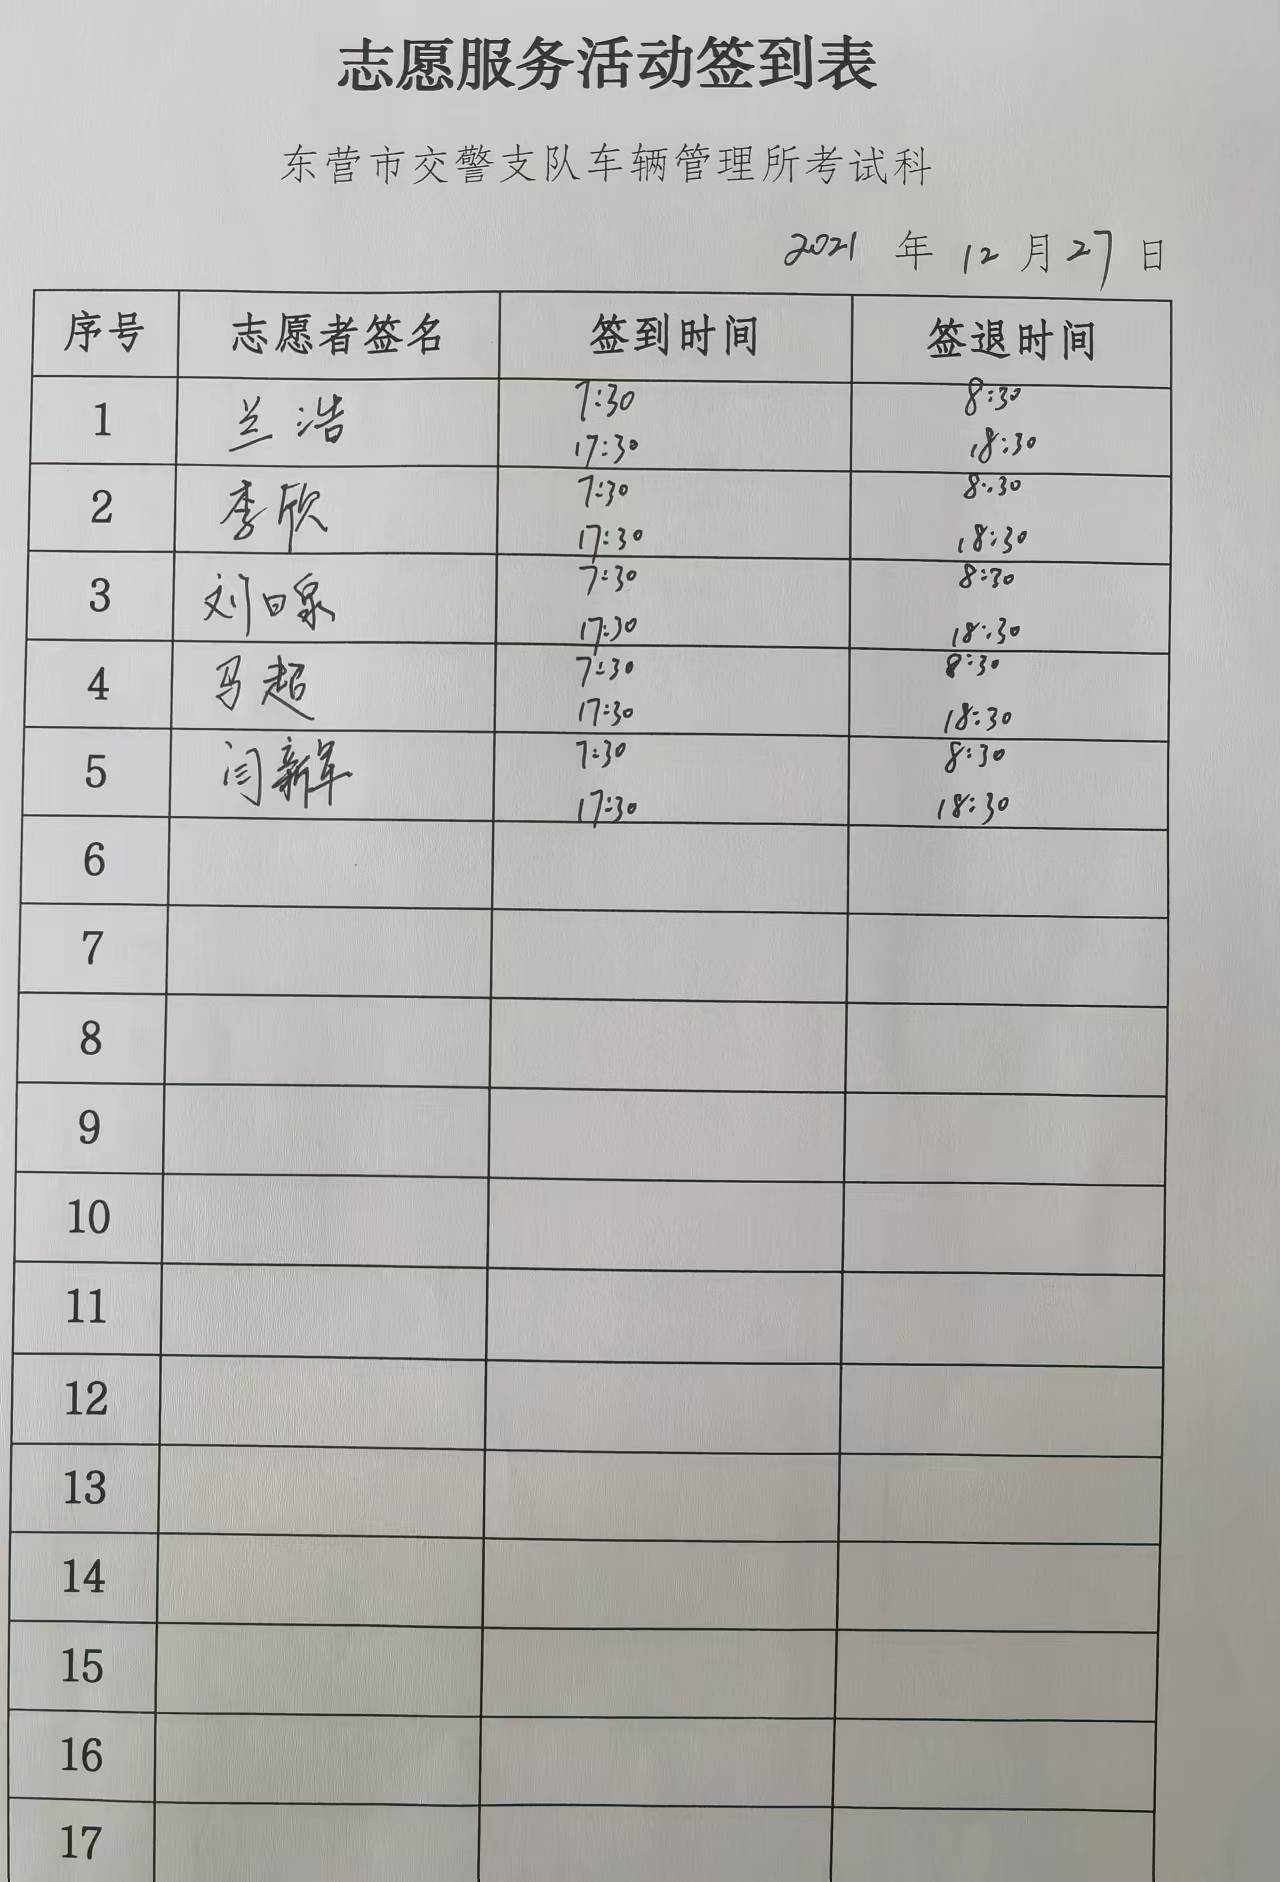 志愿服务活动签到表
东营市交警支队车辆管理所考试科
2021 年 12 月 27 日
序号 志愿者签名 签到时间 签退时间
1 兰浩 7:30 8:30
17:30 18:30
2 李欣 7:30 8:30
17:30 18:30
3 刘日泉 7:30 8:30
17:30 18:30
4 马超 7:30 8:30
17:30 18:30
5 闫新军 7:30 8:30
17:30 18:30
6
7
8
9
10
11
12
13
14
15
16
17